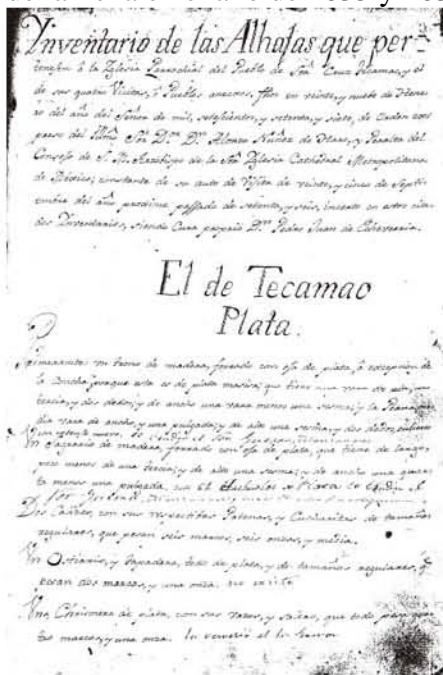 Ynventario de las Alhajas que per-
tenesen â la Yglesia Parrochial del Pueblo de Sta. Cruz Tecamac, y el
de sus quatro Visitas, ô Pueblos anexos, fho en veinte, y nueve de Hene-
ro del año del Señor de mil, setesientos, y setenta, y siete, de orden
del Yllmo Sor. Dr. Dn. Alonzo Nuñez de Haro, y Peralta del
Consejo de S. M. Arzobispo de la Sta. Yglesia Cathedral Metropolitana
de Mexico; constante de su auto de Visita de veinte, y cinco de Septi-
embre del año proximo passado de setenta, y seis, inserto en estos cita-
dos Ynventarios, siendo Cura proprio Dn. Pedro Juan de Echeverria.
El de Tecamac
Plata.
Primeramente un trono de madera, forrado con oja de plata, â excepcion de
la Concha porque esta es de plata masisa; que tiene una vara de alto,
tercia, y dos dedos; y de ancho una vara menos una sesma; y la Peana
dia vara de ancho, y una pulgada; y de alto una sesma, y dos dedos
Un Sagrario de madera, forrado con oja de plata, que tiene de largo,
poco menos de una tercia; y de alto una sesma; y de ancho una quar-
ta menos una pulgada,
Dos Calizes, con sus respectibas Patenas, y Cucharitas de tamaños
regulares, que pesan seis marcos, seis onzas, y media.
Un Ostiario, y tapadera, todo de plata, y de tamaños regulares, q
pesan dos marcos, y una onza. no existe
Una Chrismera de plata, con sus vasos, y todo pesa qua-
tro marcos, y una onza.